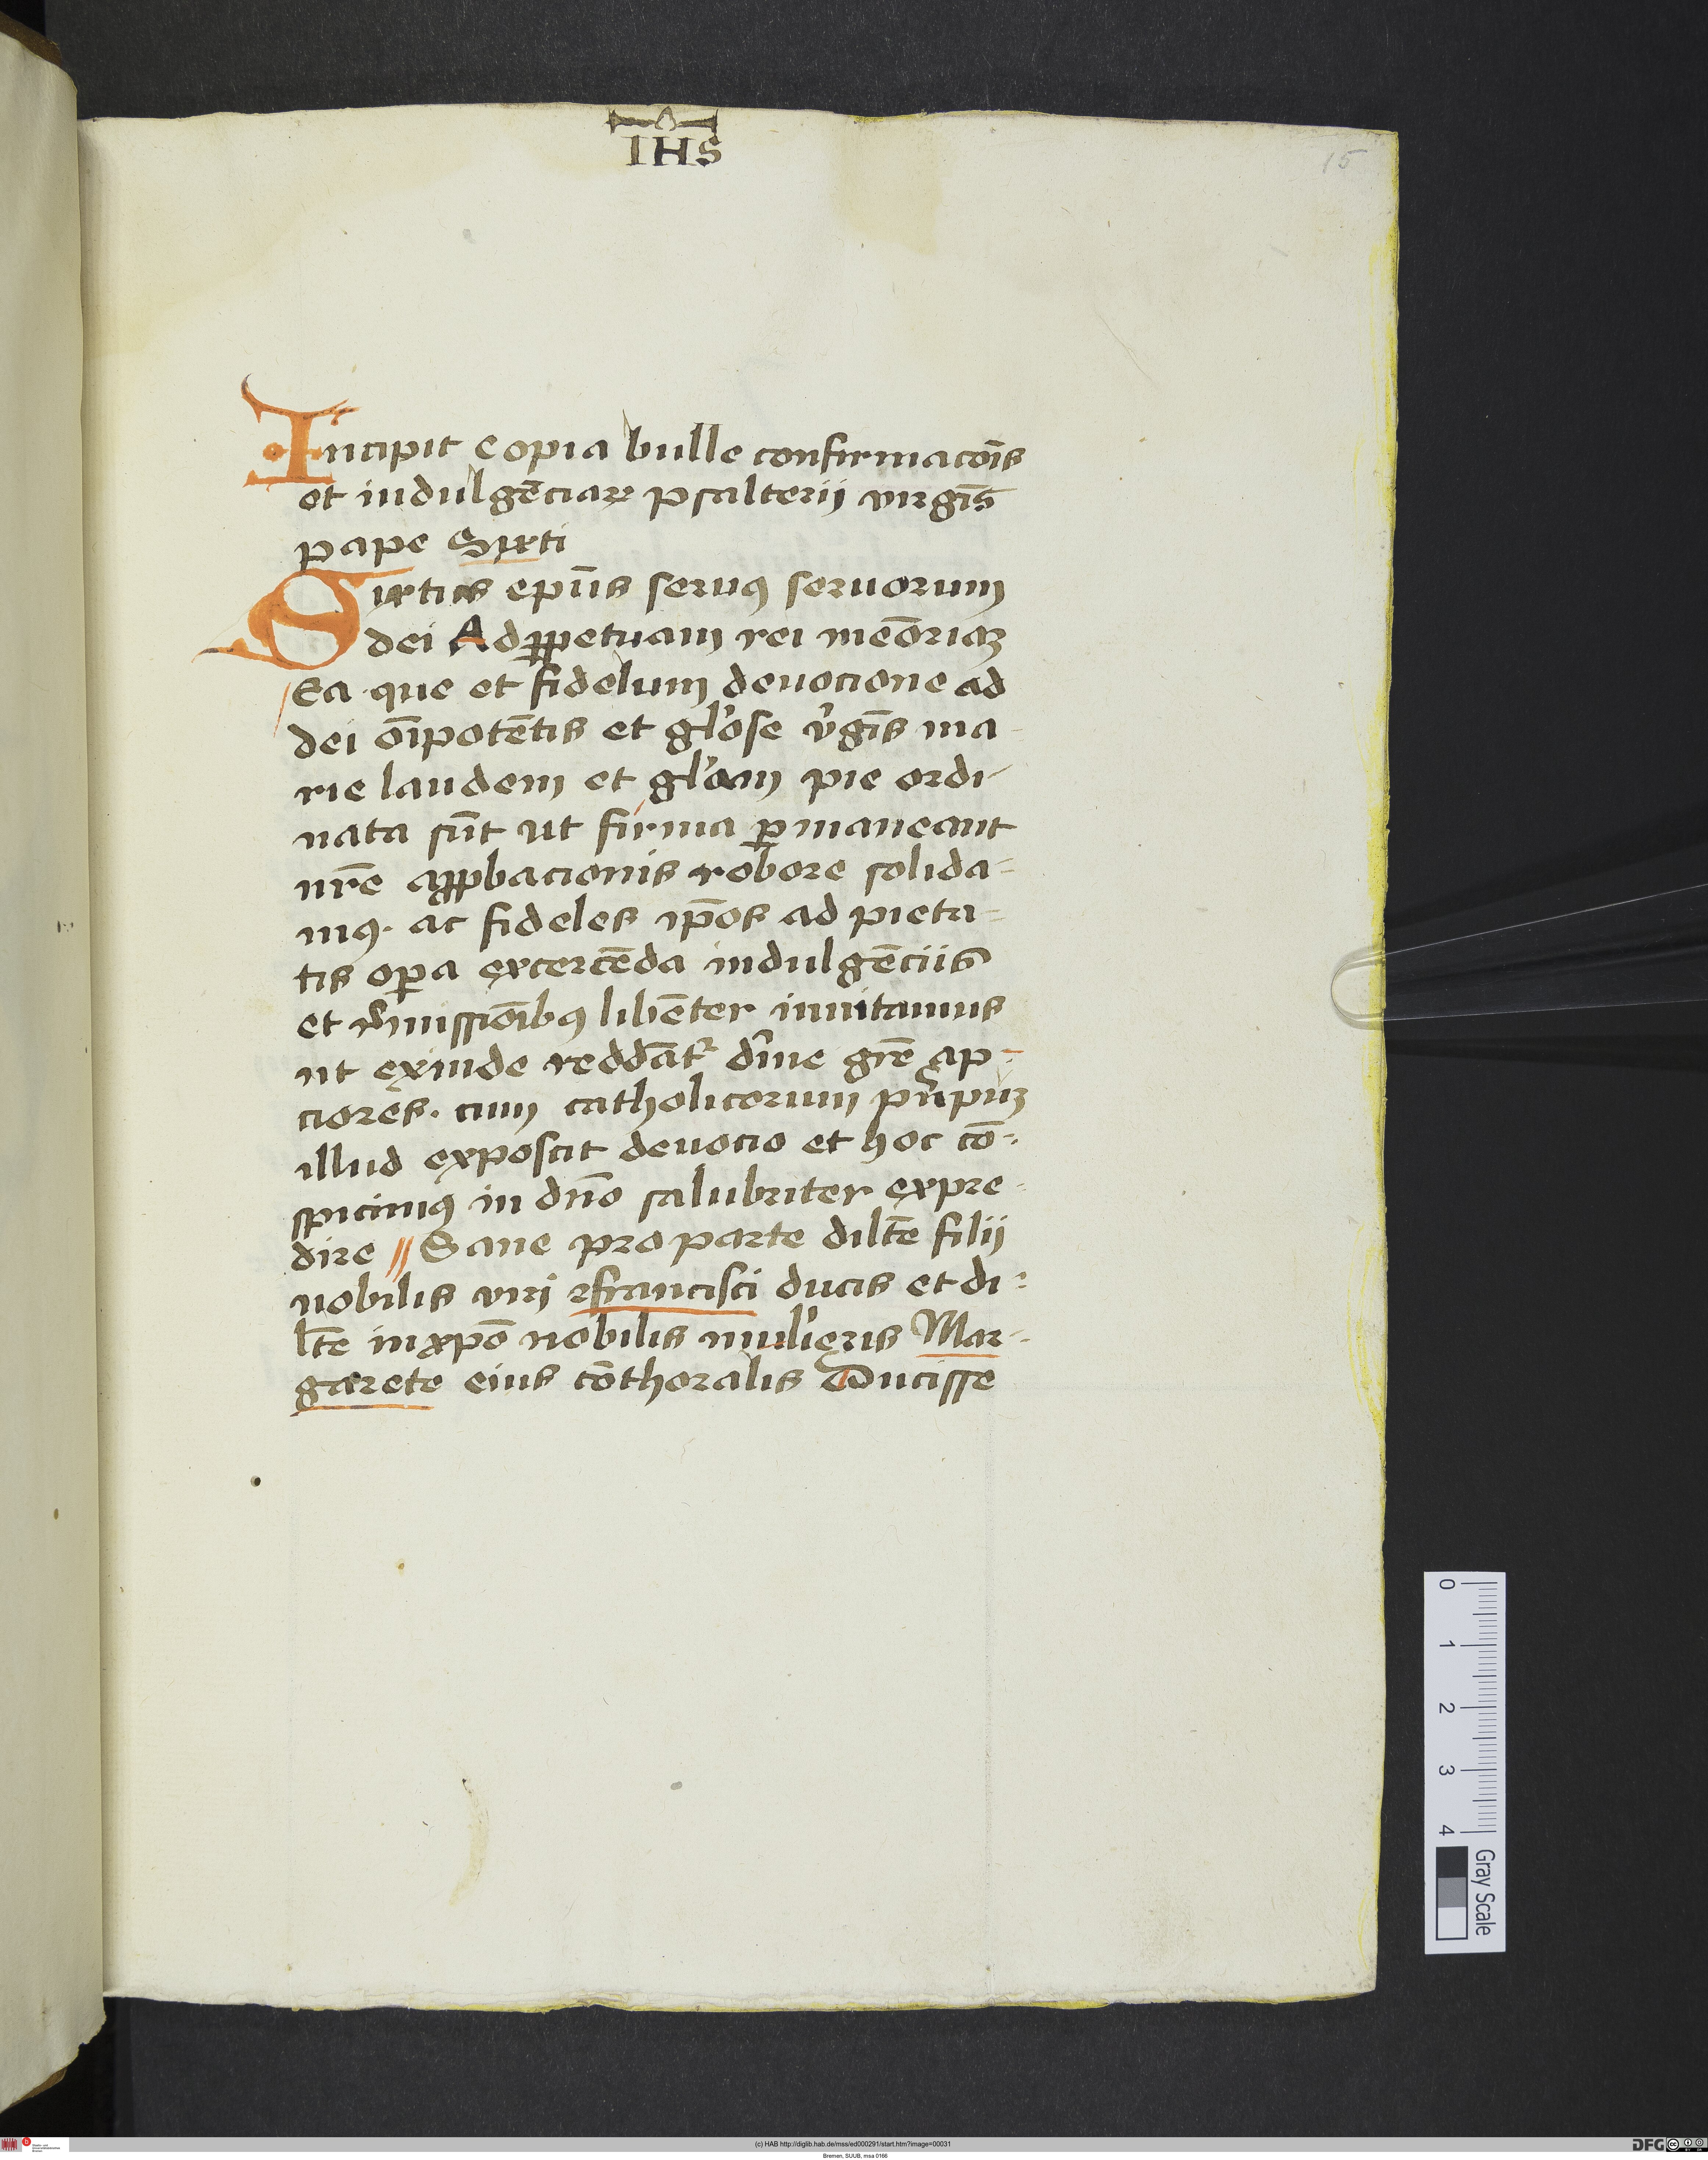 IHS
15
Incipit copia bulle confirmacōis
et indulgēciaꝝ psalterii virgīs
pape Sixti
Sixtus epūs seruꝯ seruorum
dei Ad ꝑpetuam rei meōriaꝫ
Ea que et fidelium deuocione ad
dei oīpotētis et gl'ose v̓gīs ma-
rie laudem et gl'am pie ordi-
nata sūt ut firma ꝑmaneant
nr̄e apꝓbacionis robore solida-
mꝯ. ac fideles ip̄os ad pieta-
tis oꝑa excercēda indulgēciis
et r̓missiōibꝯ libēter inuitamus
ut exinde reddāt᷑ di̓ne gr̄e ap-
ciores. cum catholicorum pn̓cipuꝫ
illud exposcit deuocio et hoc cō-
spicimꝯ in dn̄o salubriter expe-
dire // Sane pro parte dilc̄te filij
nobilis viri francisci ducis et di-
lc̄te in xp̄o nobilis muli'eris Mar-
garete eius cōthoralis Ducisse
0 1 2 3 4
Gray Scale
(c) HAB http://diglib.hab.de/mss/ed000291/start.htm?image=00031
Bremen, SUUB, msa 0166
DFG